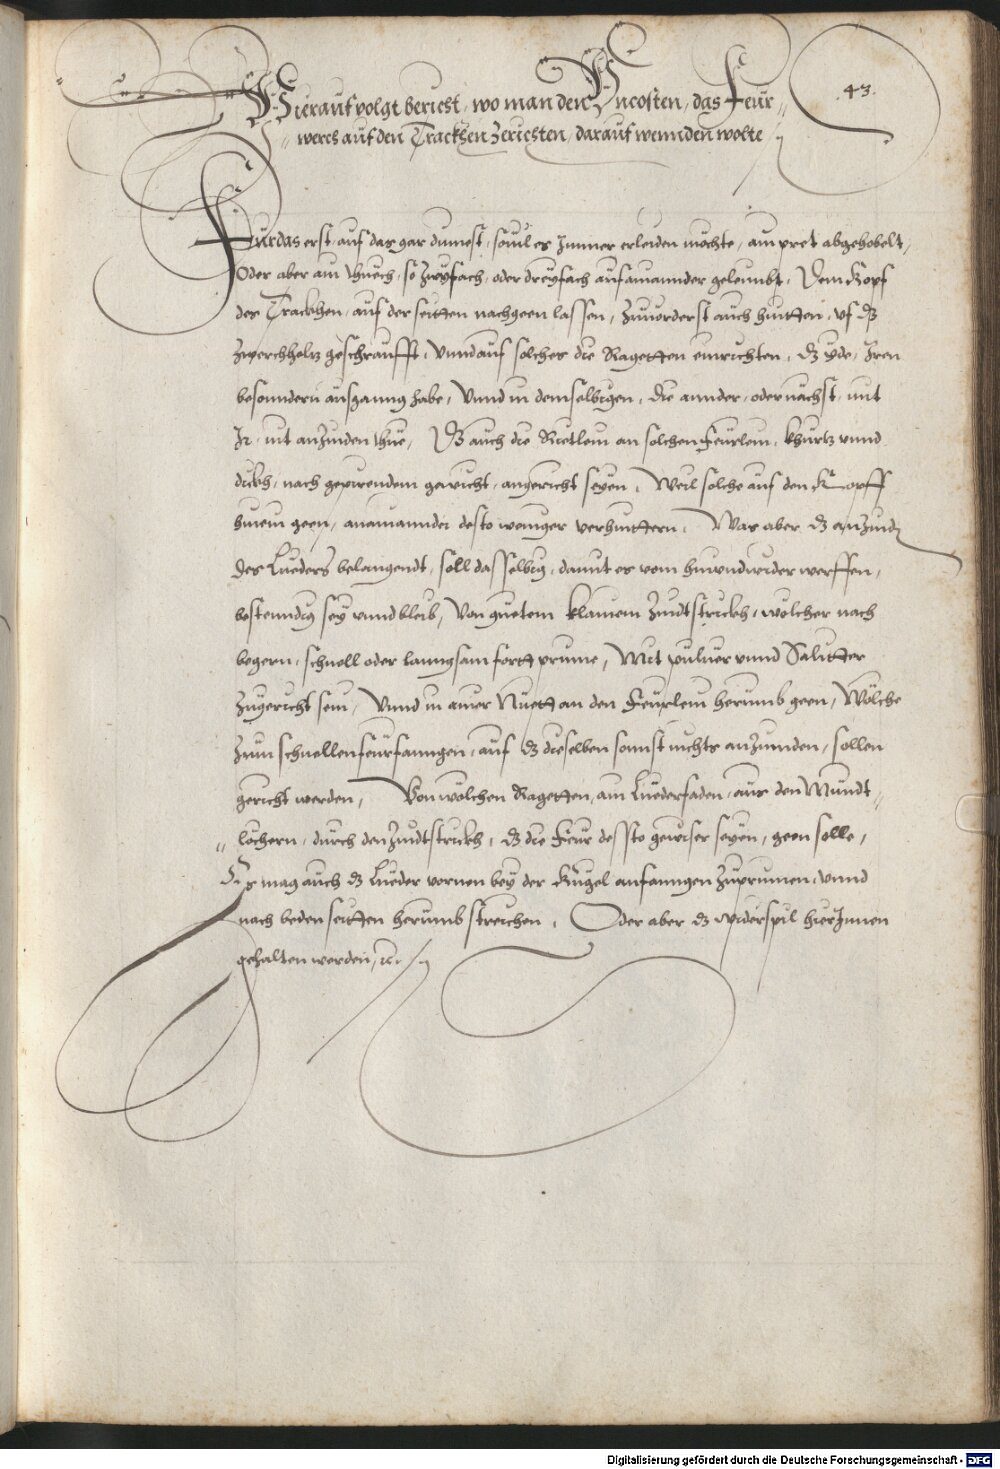 .43.
Hierauf volgt bericht, wo man den Uncosten, das Feur
werch auf den Trackhen Zerichten, darauf wennden wolte
Für das erst, auf das gar dinnest, souil es Immer erleiden möchte, ain pret abgehobelt,
Oder aber ain thuech, so Zwyfach, oder dreyfach aufainannder geleimbt, Dem Kopf
des Trackhen, auf der seitten nachgeen lassen, Zuuorderst auch hintten, uf dz
Zwerchholtz geschraufft, Vnnd auf solches die Ragetten einrichten, dz yde, Iren
besonndern ausganng habe, Vnnd in demselbigen, die annder, oder nächst, mit
Ir, nit anZinden thue, Dz auch die Rietlein an solchen Feürlein, khurtz vnnd
dickh, nach gepürendem gewicht, angericht seyen, Weil solche auf den Kopff
hinein geen, anainannder desto weniger verhinttern, Was aber dz anZindt
des Lueders belanngendt, soll dasselbig, damit es vom hin vnd wider werffen,
bestenndig sey vnnd bleib, Von guetem klainem Zündtstrickh, welcher nach
begern, schnell oder lanngsam fortt prinne, Mit puluer vnnd Salitter
Zugericht sein, Vnnd in ainer Nuett an den Feürlein herumb geen, Wölche
Zum schnellen feürfanngen, auf dz dieselben sonnst nichts anZinnden, sollen
gericht werden, Von wölchen Ragetten, am Luederfaden, aus den Mundt
löchern, durch den Zindtstrickh, dz die Feür dessto gewiser seyen, geen solle,
Es mag auch dz Lueder vornen bey der Kugel anfanngen Zuprinnen, vnnd
nach beden seitten herumb streichen, Oder aber dz widerspil hierInnen
gehalten werden, etc.
Digitalisierung gefördert durch die Deutsche Forschungsgemeinschaft - DFG